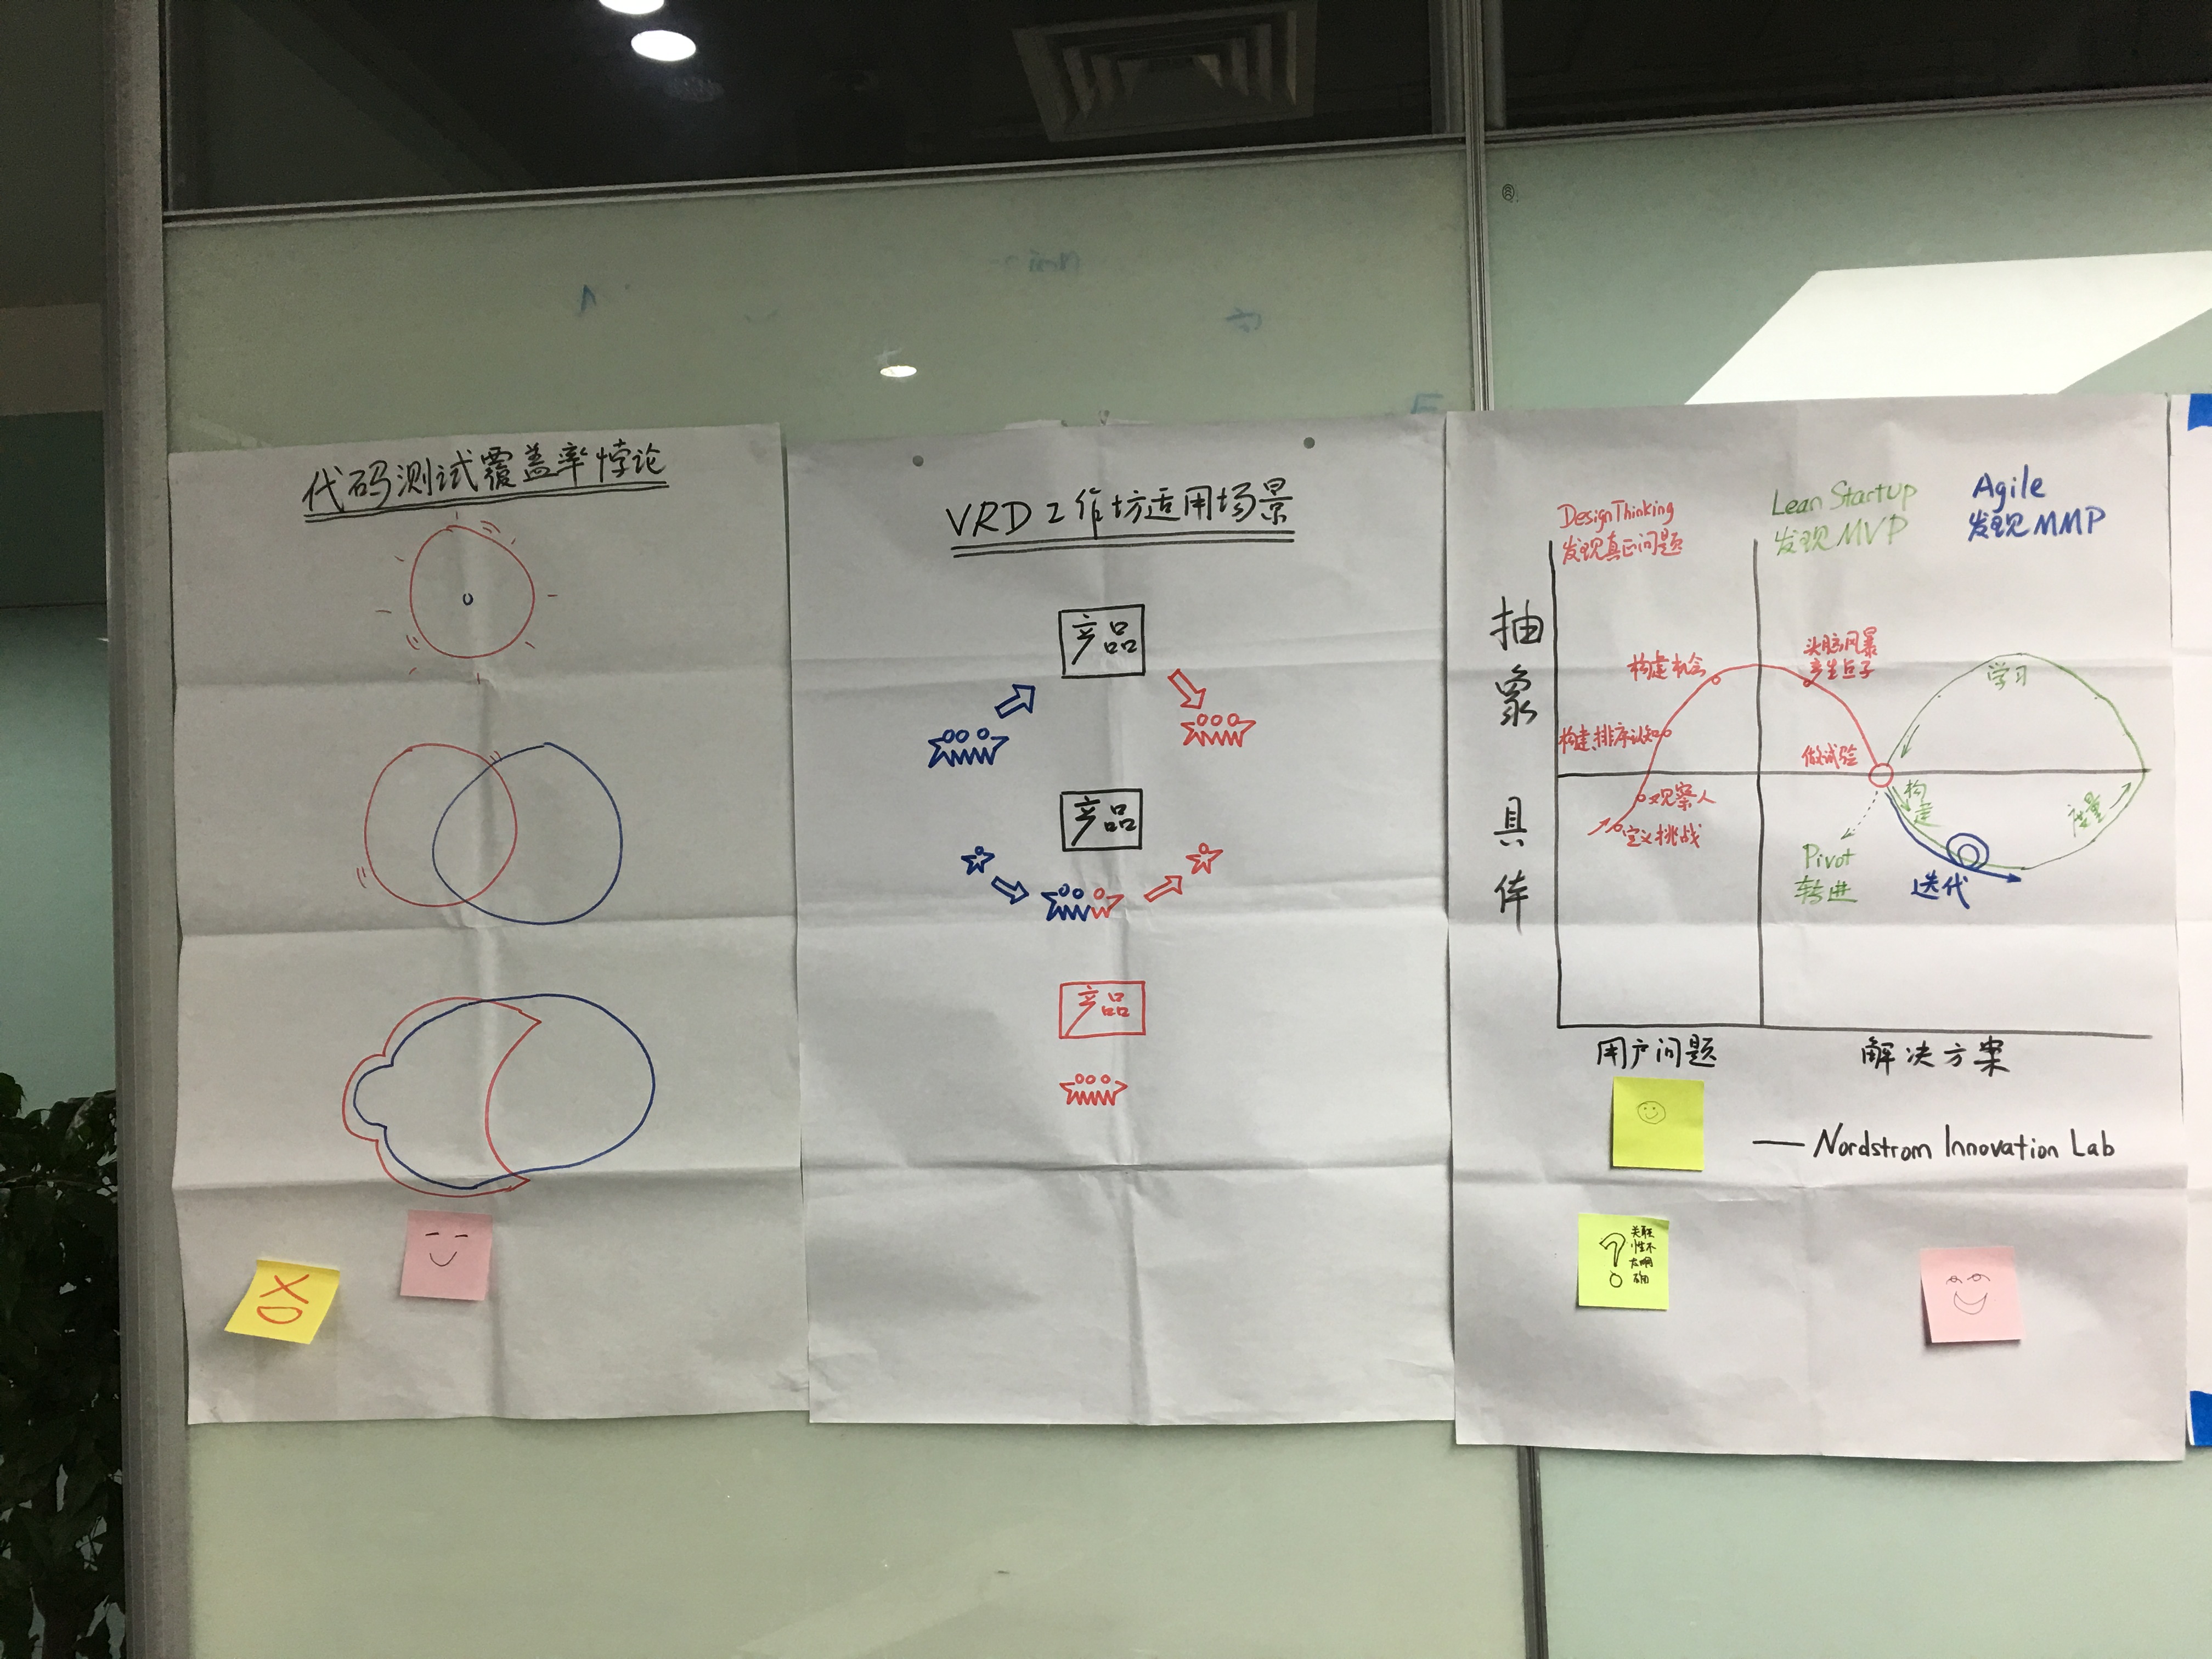 代码测试覆盖率悖论
VRD工作坊适用场景
产品
产品
产品
Design Thinking
发现真正问题
Lean Startup
发现MVP
Agile
发现MMP
抽象
具体
构建机会
构建、排序认知
观察人
定义挑战
头脑风暴
产生点子
做试验
学习
构建
度量
Pivot
转进
迭代
用户问题
解决方案
—— Nordstrom Innovation Lab
?
关联
性不
太明
确
XD